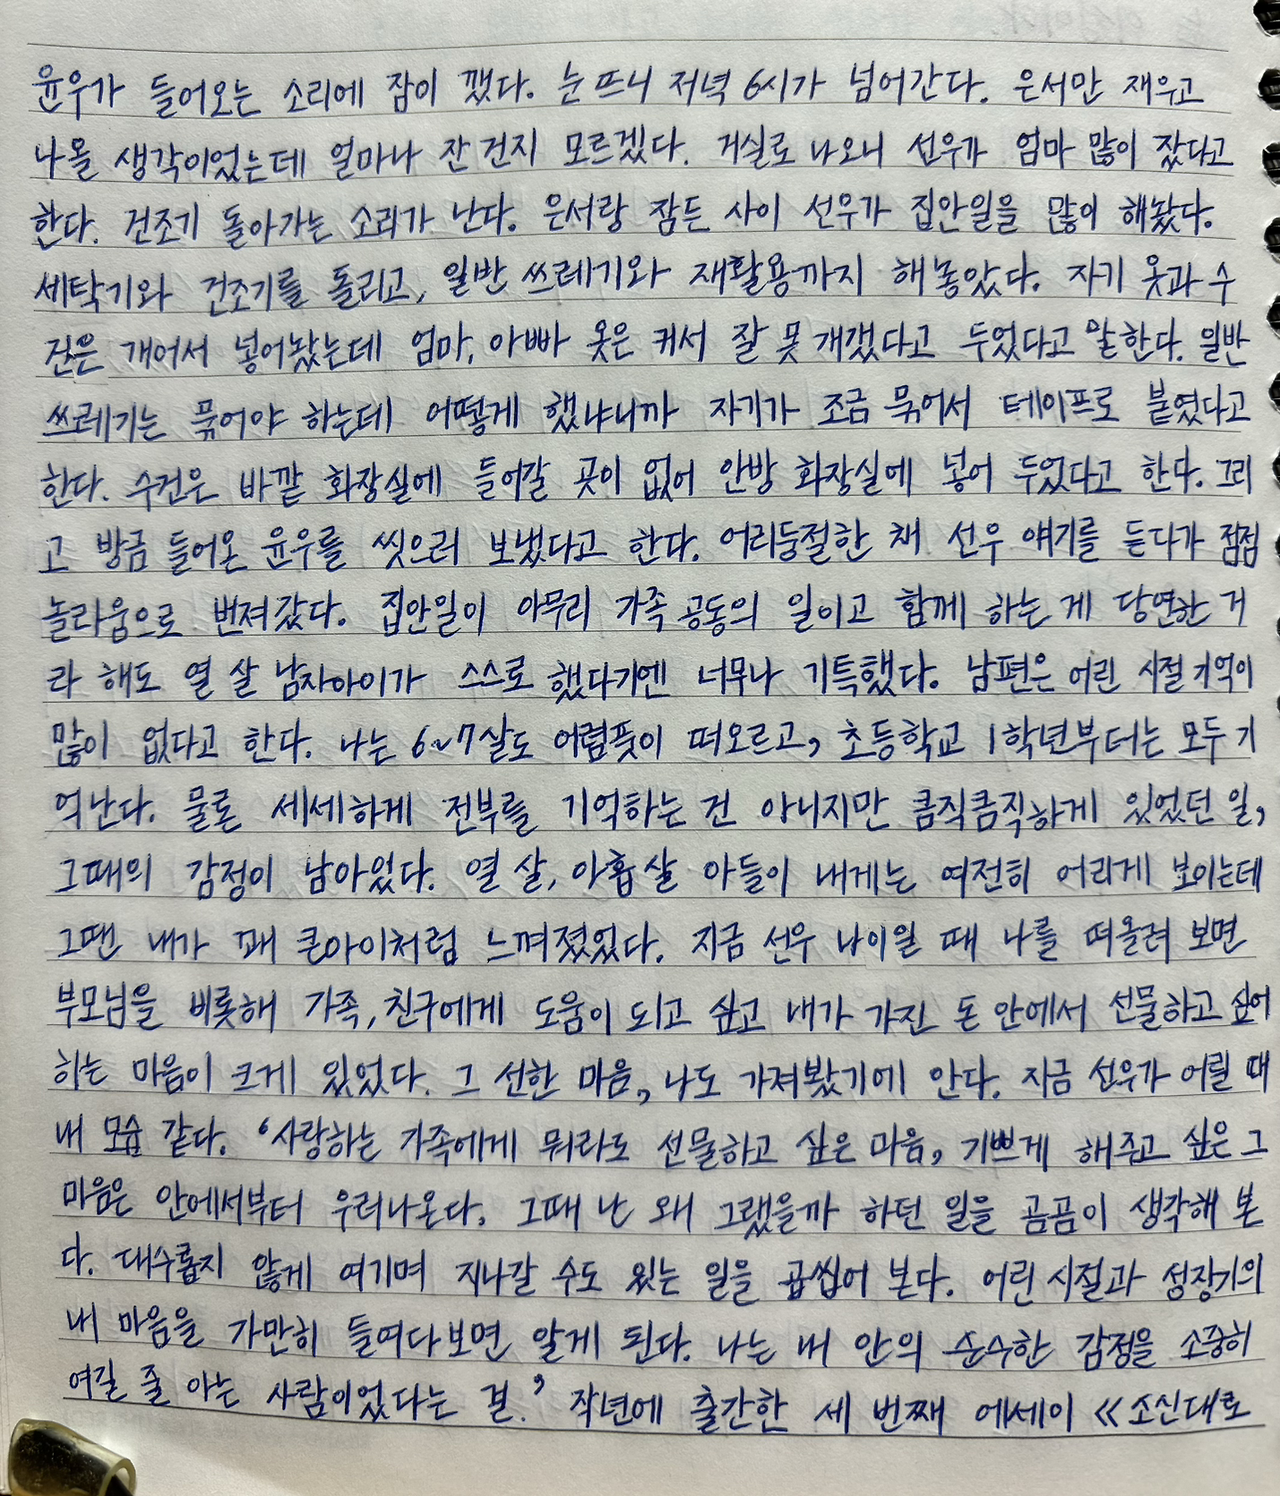 윤우가 들어오는 소리에 잠이 깼다. 눈 뜨니 저녁 6시가 넘어간다. 은서만 재우고
나올 생각이었는데 얼마나 잔 건지 모르겠다. 거실로 나오니 선우가 엄마 많이 잤다고
한다. 건조기 돌아가는 소리가 난다. 은서랑 잠든 사이 선우가 집안일을 많이 해놨다.
세탁기와 건조기를 돌리고, 일반 쓰레기와 재활용까지 해놓았다. 자기 옷과 수
건은 개어서 넣어놨는데 엄마, 아빠 옷은 커서 잘 못 개겠다고 두었다고 말한다. 일반
쓰레기는 묶어야 하는데 어떻게 했냐니까 자기가 조금 묶어서 테이프로 붙였다고
한다. 수건은 바깥 화장실에 들어갈 곳이 없어 안방 화장실에 넣어 두었다고 한다. 그리
고 방금 들어온 윤우를 씻으러 보냈다고 한다. 어리둥절한 채 선우 얘기를 듣다가 점점
놀라움으로 번져갔다. 집안일이 아무리 가족 공동의 일이고 함께 하는 게 당연한 거
라 해도 열 살 남자아이가 스스로 했다기엔 너무나 기특했다. 남편은 어린 시절 기억이
많이 없다고 한다. 나는 6~7살도 어렴풋이 떠오르고, 초등학교 1학년부터는 모두 기
억난다. 물론 세세하게 전부를 기억하는 건 아니지만 큼직큼직하게 있었던 일,
그때의 감정이 남아있다. 열 살, 아홉 살 아들이 내게는 여전히 어리게 보이는데
그땐 내가 꽤 큰아이처럼 느껴졌었다. 지금 선우 나이일 때 나를 떠올려 보면
부모님을 비롯해 가족, 친구에게 도움이 되고 싶고 내가 가진 돈 안에서 선물하고 싶어
하는 마음이 크게 있었다. 그 선한 마음, 나도 가져봤기에 안다. 지금 선우가 어릴 때
내 모습 같다. ‘사랑하는 가족에게 뭐라도 선물하고 싶은 마음, 기쁘게 해주고 싶은 그
마음은 안에서부터 우러나온다. 그때 난 왜 그랬을까 하던 일을 곰곰이 생각해 본
다. 대수롭지 않게 여기며 지나갈 수도 있는 일을 곱씹어 본다. 어린 시절과 성장기의
내 마음을 가만히 들여다보면 알게 된다. 나는 내 안의 순수한 감정을 소중히
여길 줄 아는 사람이었다는 걸.’ 작년에 출간한 세 번째 에세이 《소신대로